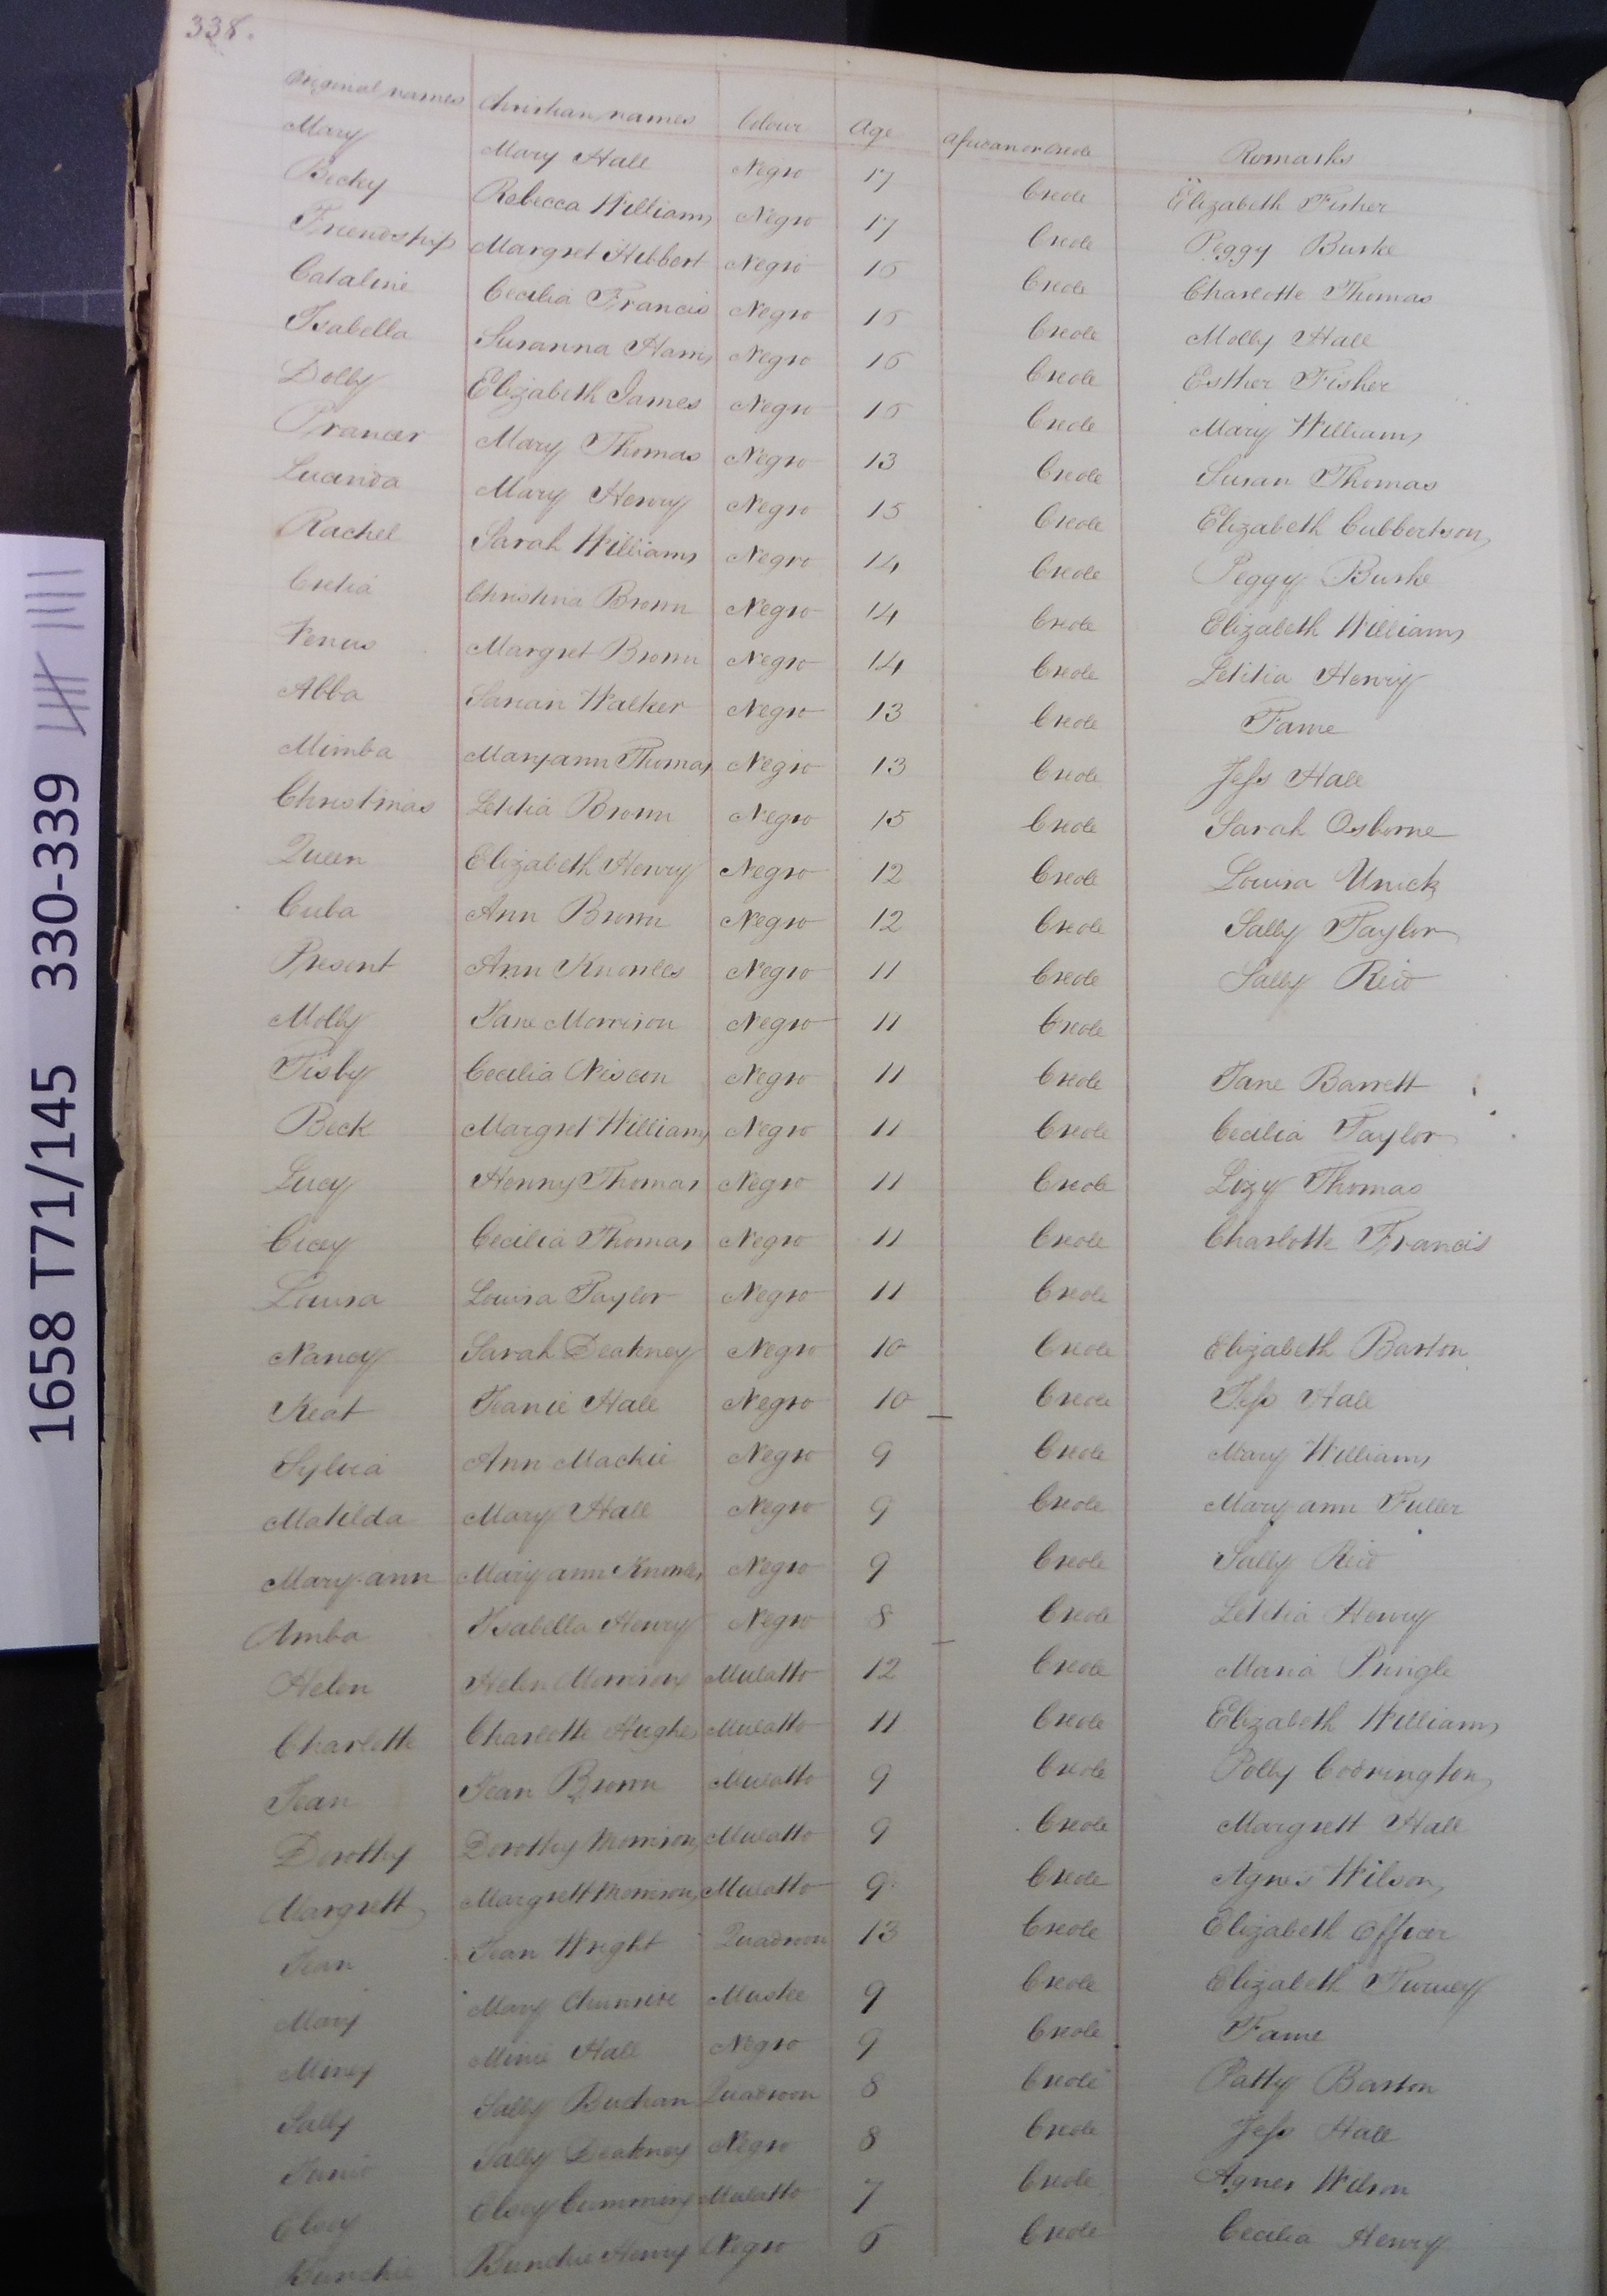 338.
Original names Christian names Colour Age African or Creole Remarks
Mary Mary Hall Negro 17 Creole Elizabeth Fisher
Becky Rebecca Williams Negro 17 Creole Peggy Burke
Friendship Margret Hibbert Negro 16 Creole Charlotte Thomas
Cataline Cecilia Francis Negro 15 Creole Molly Hall
Isabella Susanna Harris Negro 16 Creole Esther Fisher
Dolly Elizabeth James Negro 15 Creole Mary Williams
Prancer Mary Thomas Negro 13 Creole Susan Thomas
Lucinda Mary Henry Negro 15 Creole Elizabeth Cubbertson
Rachel Sarah Williams Negro 14 Creole Peggy Burke
Cretia Christina Brown Negro 14 Creole Elizabeth Williams
Venus Margret Brown Negro 14 Creole Letitia Henry
Abba Walker Negro 13 Creole Fame
Mimba Maryann Thomas Negro 13 Creole Jess Hall
Christmas Letitia Brown Negro 15 Creole Sarah Osborne
Queen Elizabeth Henry Negro 12 Creole Louisa Unick
Cuba Ann Brown Negro 12 Creole Sally Taylor
Present Ann Knowles Negro 11 Creole Sally Reid
Molly Jane Morrison Negro 11 Creole
Tisby Cecilia Negro 11 Creole Jane Barrett
Beck Margret Williams Negro 11 Creole Cecilia Taylor
Lucy Henny Thomas Negro 11 Creole Lizy Thomas
Cicey Cecilia Thomas Negro 11 Creole Charlotte Francis
Louisa Louisa Taylor Negro 11 Creole
Nancy Sarah Deakney Negro 10 Creole Elizabeth Barton
Keat Jeanie Hall Negro 10 Creole Jess Hall
Sylvia Ann Mackie Negro 9 Creole Mary Williams
Matilda Mary Hall Negro 9 Creole Mary ann Fuller
Mary-ann Mary ann Knowles Negro 9 Creole Sally Reid
Amba Isabella Henry Negro 8 Creole Letitia Henry
Helen Helen Morrison Mulatto 12 Creole Maria Pringle
Charlotte Charlotte Hughes Mulatto 11 Creole Elizabeth Williams
Jean Jean Brown Mulatto 9 Creole Polly Codrington
Dorothy Dorothy Morrison Mulatto 9 Creole Margrett Hall
Margrett Margrett Morrison Mulatto 9 Creole Agnes Wilson
Jean Jean Wright Quadroon 13 Creole Elizabeth Officer
Mary Mary Mustee 9 Creole Elizabeth Turney
Miney Minie Hall Negro 9 Creole Fame
Sally Sally Buchan Quadroon 8 Creole Patty Barton
Sally Deakney Negro 8 Creole Jess Hall
Elsey Elsey Cumming Mulatto 7 Creole Agnes Wilson
Bunchie Bunchie Henry Negro 5 Creole Cecilia Henry
1658 T71/145 330-339